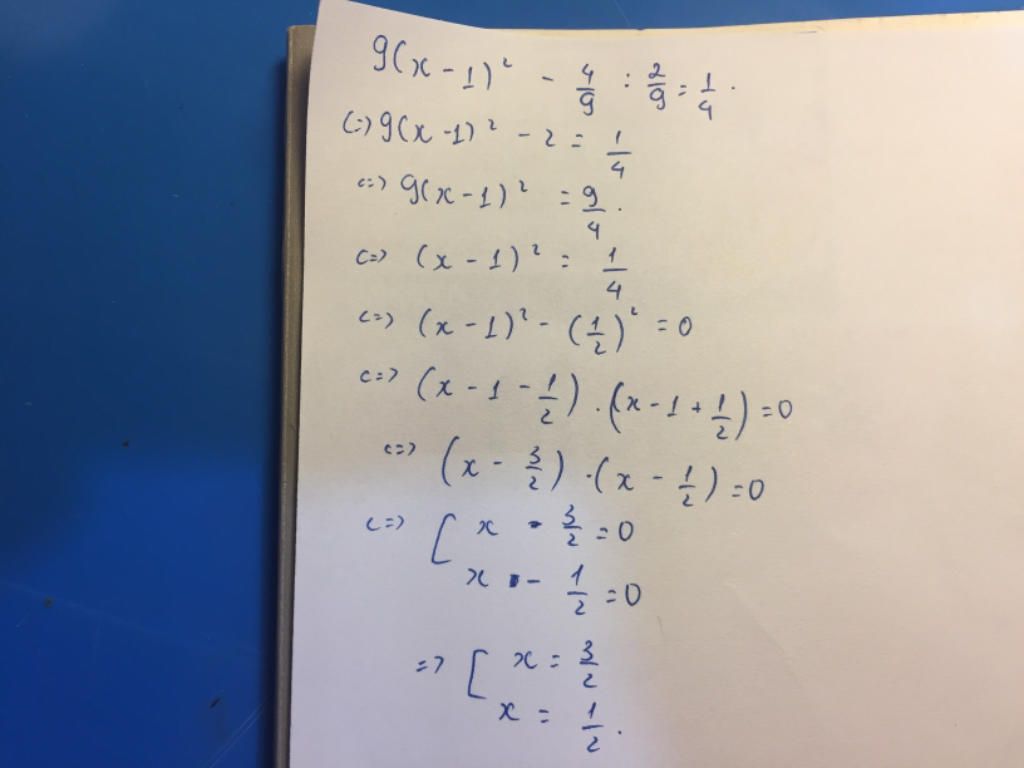 9(x - 1)² - 4/9 : 2/9 = 1/4.
<=> 9(x - 1)² - 2 = 1/4
<=> 9(x - 1)² = 9/4.
<=> (x - 1)² = 1/4
<=> (x - 1)² - (1/2)² = 0
<=> (x - 1 - 1/2) . (x - 1 + 1/2) = 0
<=> (x - 3/2) . (x - 1/2) = 0
<=> [ x - 3/2 = 0
x - 1/2 = 0
=> [ x = 3/2
x = 1/2.